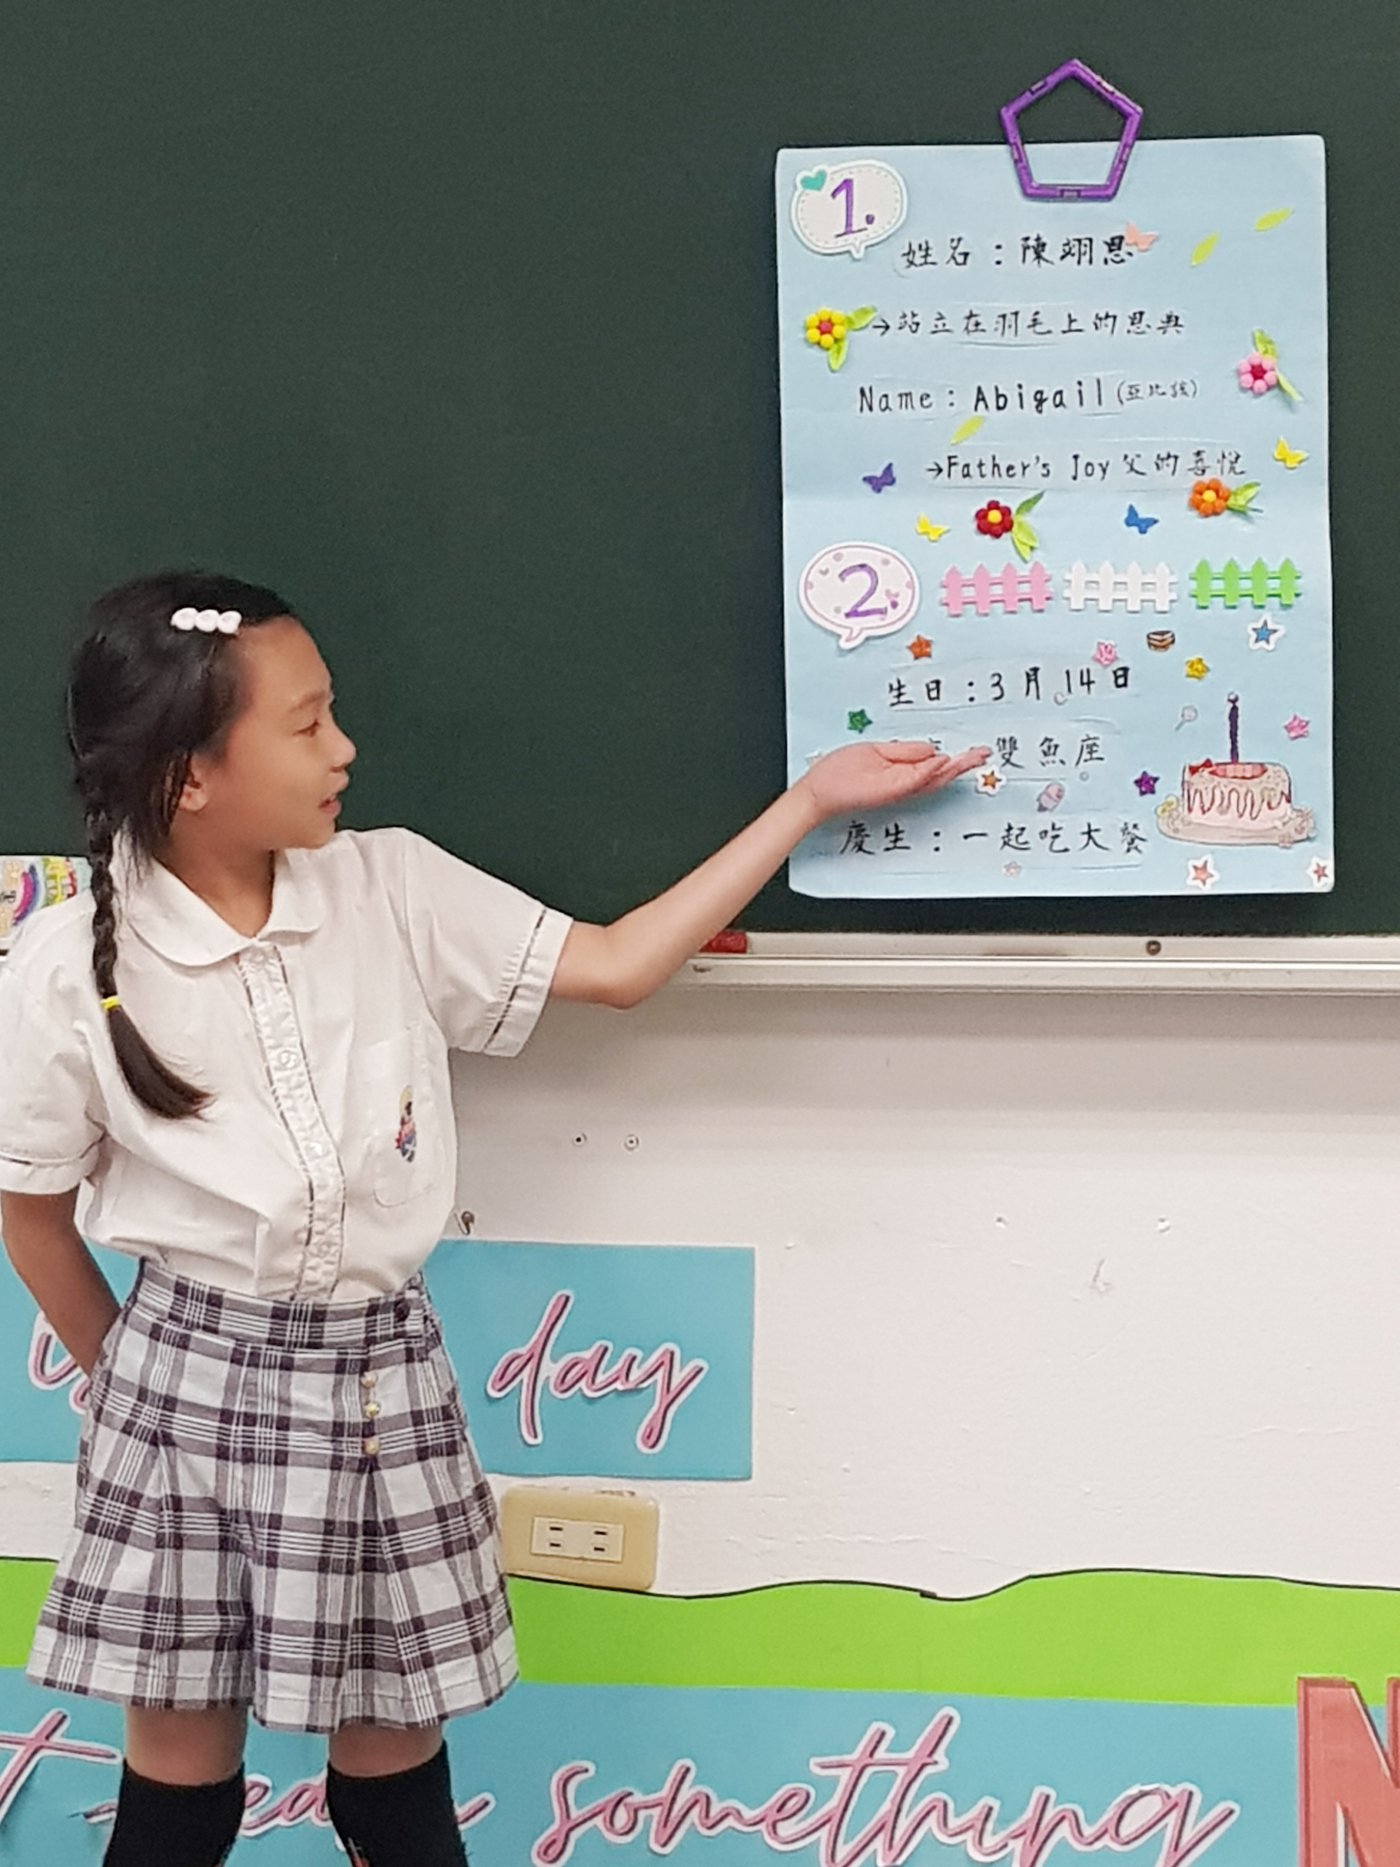 1.
姓名：陳翊恩
→站立在羽毛上的恩典
Name：Abigail (亞比該)
→Father's Joy 父的喜悅
2.
生日：3月14日
雙魚座
慶生：一起吃大餐
day
something
N